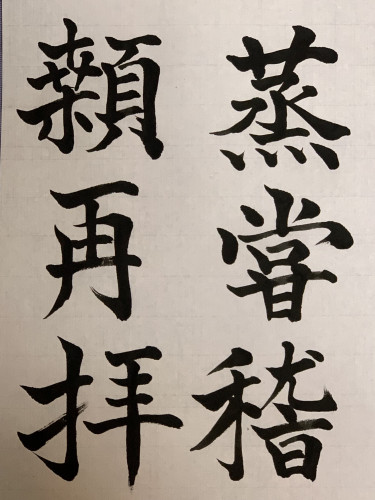 蒸嘗稽
顙再拝